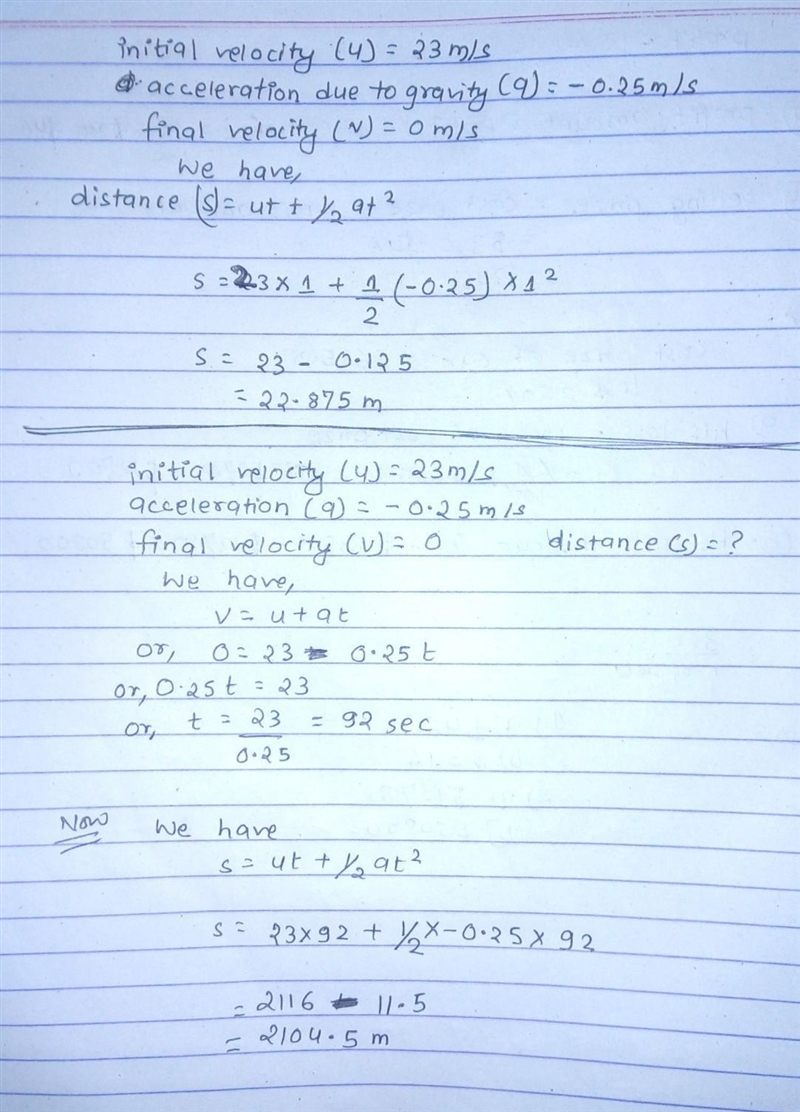 initial velocity (u) = 23 m/s
acceleration due to gravity (a) = - 0.25 m/s
final velocity (v) = 0 m/s
We have,
distance (s) = ut + 1/2 at²
s = 23 × 1 + 1/2 (-0.25) × 1²
s = 23 - 0.125
= 22.875 m
initial velocity (u) = 23 m/s
acceleration (a) = - 0.25 m/s
final velocity (v) = 0 distance (s) = ?
We have,
v = u + at
or, 0 = 23 - 0.25 t
or, 0.25 t = 23
or, t = 23/0.25 = 92 sec
Now We have
s = ut + 1/2 at²
s = 23×92 + 1/2 × -0.25 × 92
= 2116 - 11.5
= 2104.5 m